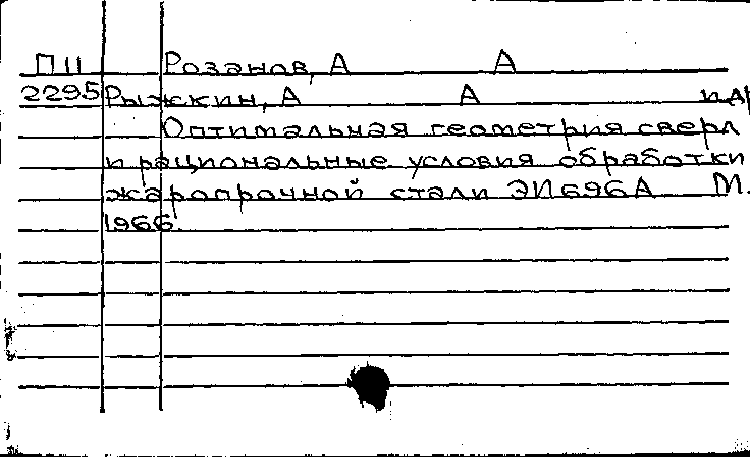 П11 Розанов, А А
2295 Рыжкин, А А и др
Оптимальная геометрия сверл
и рациональные условия обработки
жаропрочной стали ЭИ696А М.
1966.